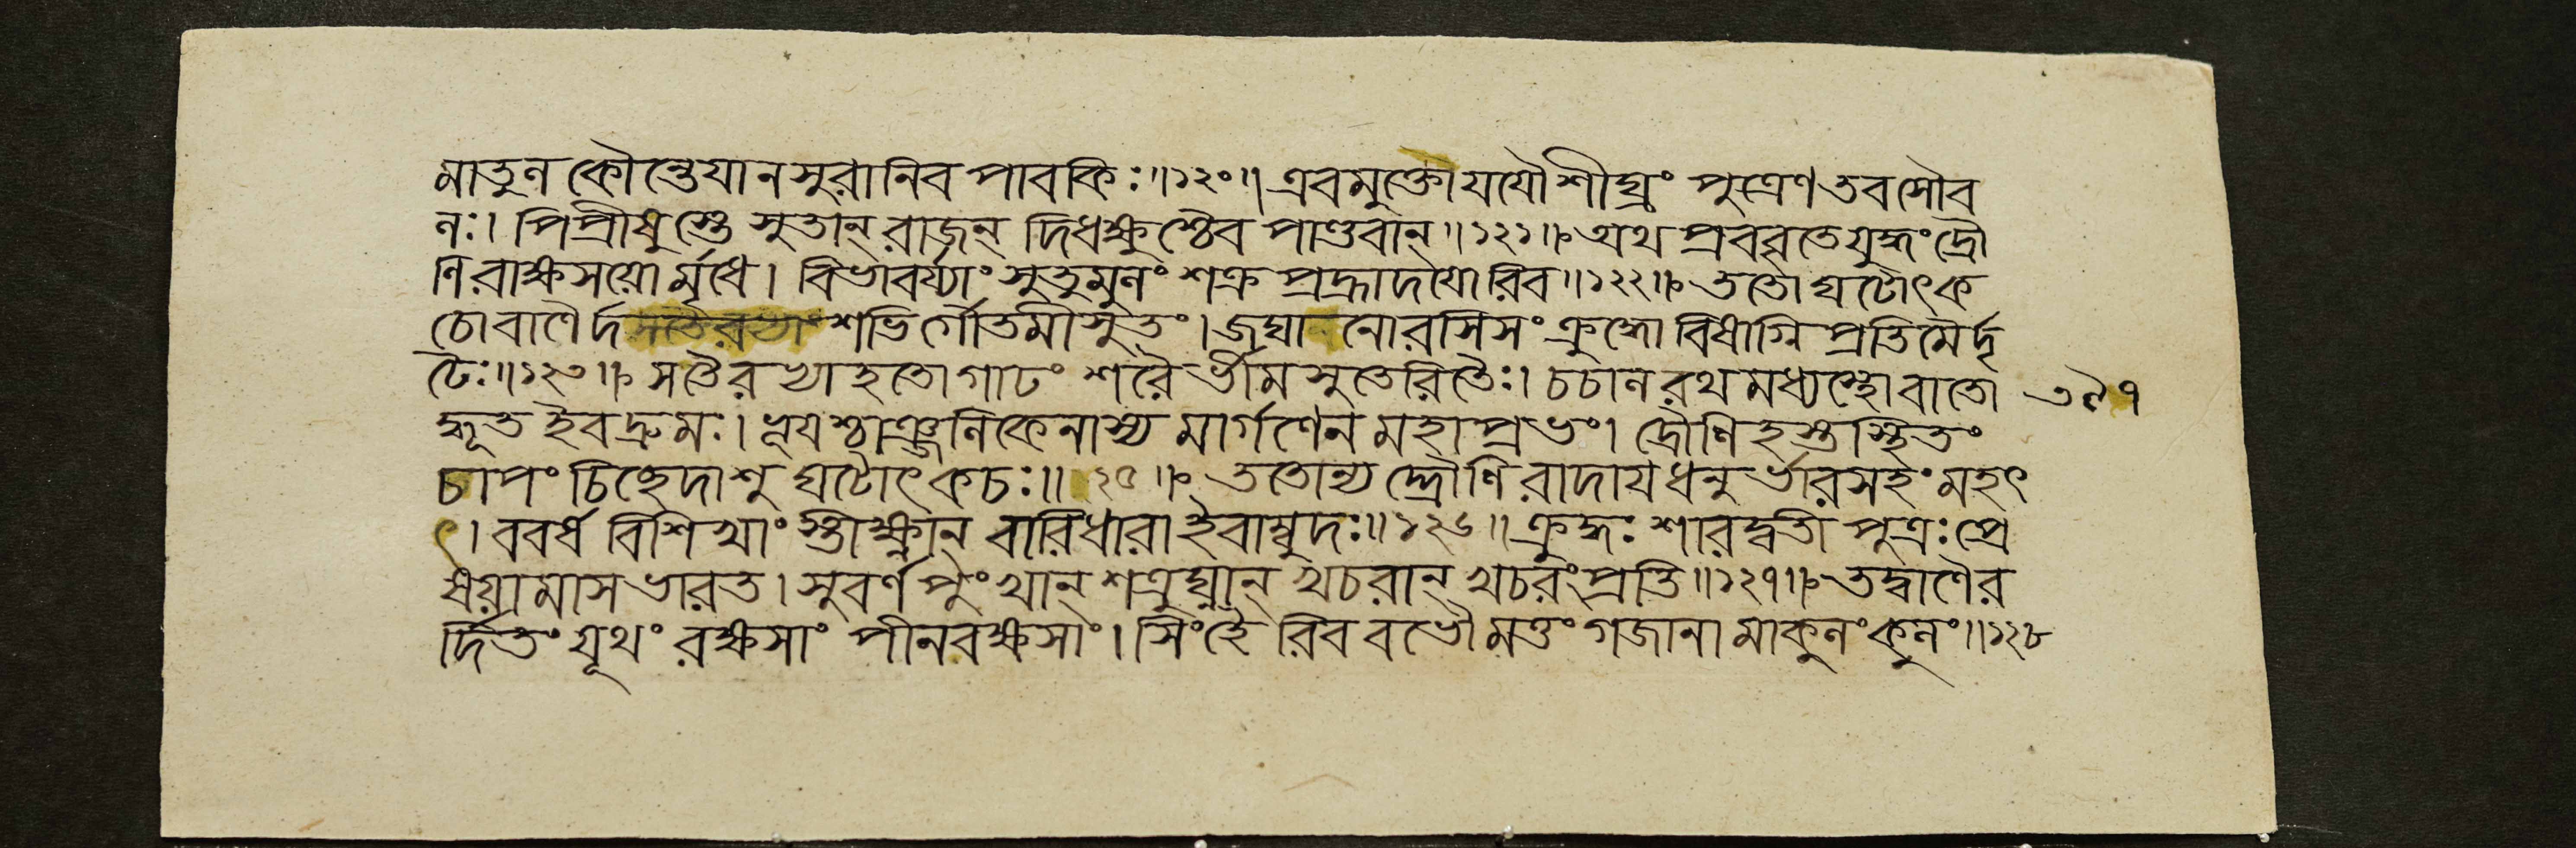 মাতুন কৌন্তেযানসুরানিব পাবকিঃ॥১২০॥ এবমুক্তো যযৌ শীঘ্রং পুত্রেণ তব সৌব
নঃ। পিপ্রীষুস্তে সুতান্ রাজন্ দিধক্ষুশ্চৈব পাণ্ডবান্॥১২১॥ অথ প্রববৃতে যুদ্ধং দ্রৌ
ণিরাক্ষসয়োর্মৃধে। বিভাবর্য্যাং সুতুমুনং শক্রপ্রহ্লাদযোরিব॥১২২॥ ততো ঘটোৎক
চো বাণৈর্দ শভির্গৌতমীসুতং। জঘানোরসি সংক্রুদ্ধো বিষাগ্নিপ্রতিমৈর্দৃ
ঢৈঃ॥১২৩॥ স তৈরখ্যাহতো গাঢং শরৈর্ভীমসুতেরিতৈঃ। চচান রথমধ্যস্থো বাতো
দ্ধূত ইব দ্রুমঃ। ভূযশ্চাঞ্জনিকেনাস্য মার্গণেন মহাপ্রভং। দ্রৌণিহস্তস্থিতং
চাপং চিচ্ছেদাশু ঘটোৎকচঃ॥১২৫॥ ততোন্যদ্দ্রৌণিরাদায ধনুর্ভারসহং মহৎ
ৎ। ববর্ষ বিশিখাংস্তীক্ষ্ণান্ বারিধারা ইবাম্বুদঃ॥১২৬॥ ক্রুদ্ধঃ শারদ্বতী পুত্রঃ প্রে
ষয়ামাস ভারত। সুবর্ণপুংখান্ শত্রুঘ্নান্ খচরান্ খচরং প্রতি॥১২৭॥ তদ্বাণৈর
র্দিতং যূথং রক্ষসাং পীনবক্ষসাং। সিংহৈরিব বভৌ মত্তং গজানামাকুনং কুনং॥১২৮